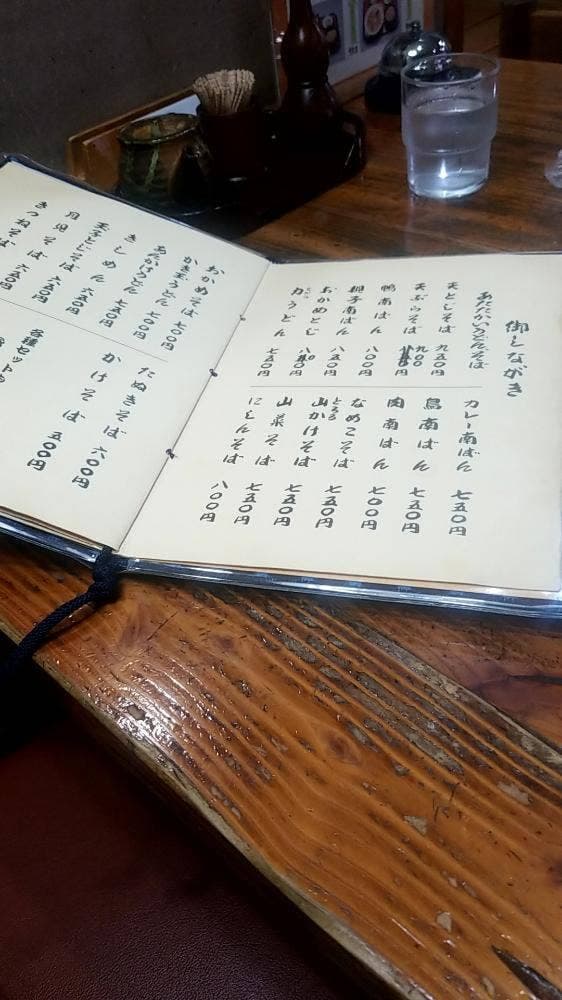 御しながき
あたたかいうどんそば
天とじそば 九五〇円
天ぷらそば 九〇〇円
鴨南ばん 八〇〇円
親子南ばん 八五〇円
おかめとじ
力うどん 七五〇円
カレー南ばん 七五〇円
鳥南ばん 七五〇円
肉南ばん 七〇〇円
なめこそば 七五〇円
とろろ
山かけそば 七五〇円
山菜そば 七五〇円
にしんそば 八〇〇円
おかめそば 七〇〇円
かき玉うどん 七〇〇円
あんかけうどん 七五〇円
きしめん
玉子とじそば 六五〇円
月見そば 六五〇円
きつねそば 六五〇円
たぬきそば 六〇〇円
かけそば 五〇〇円
各種セット